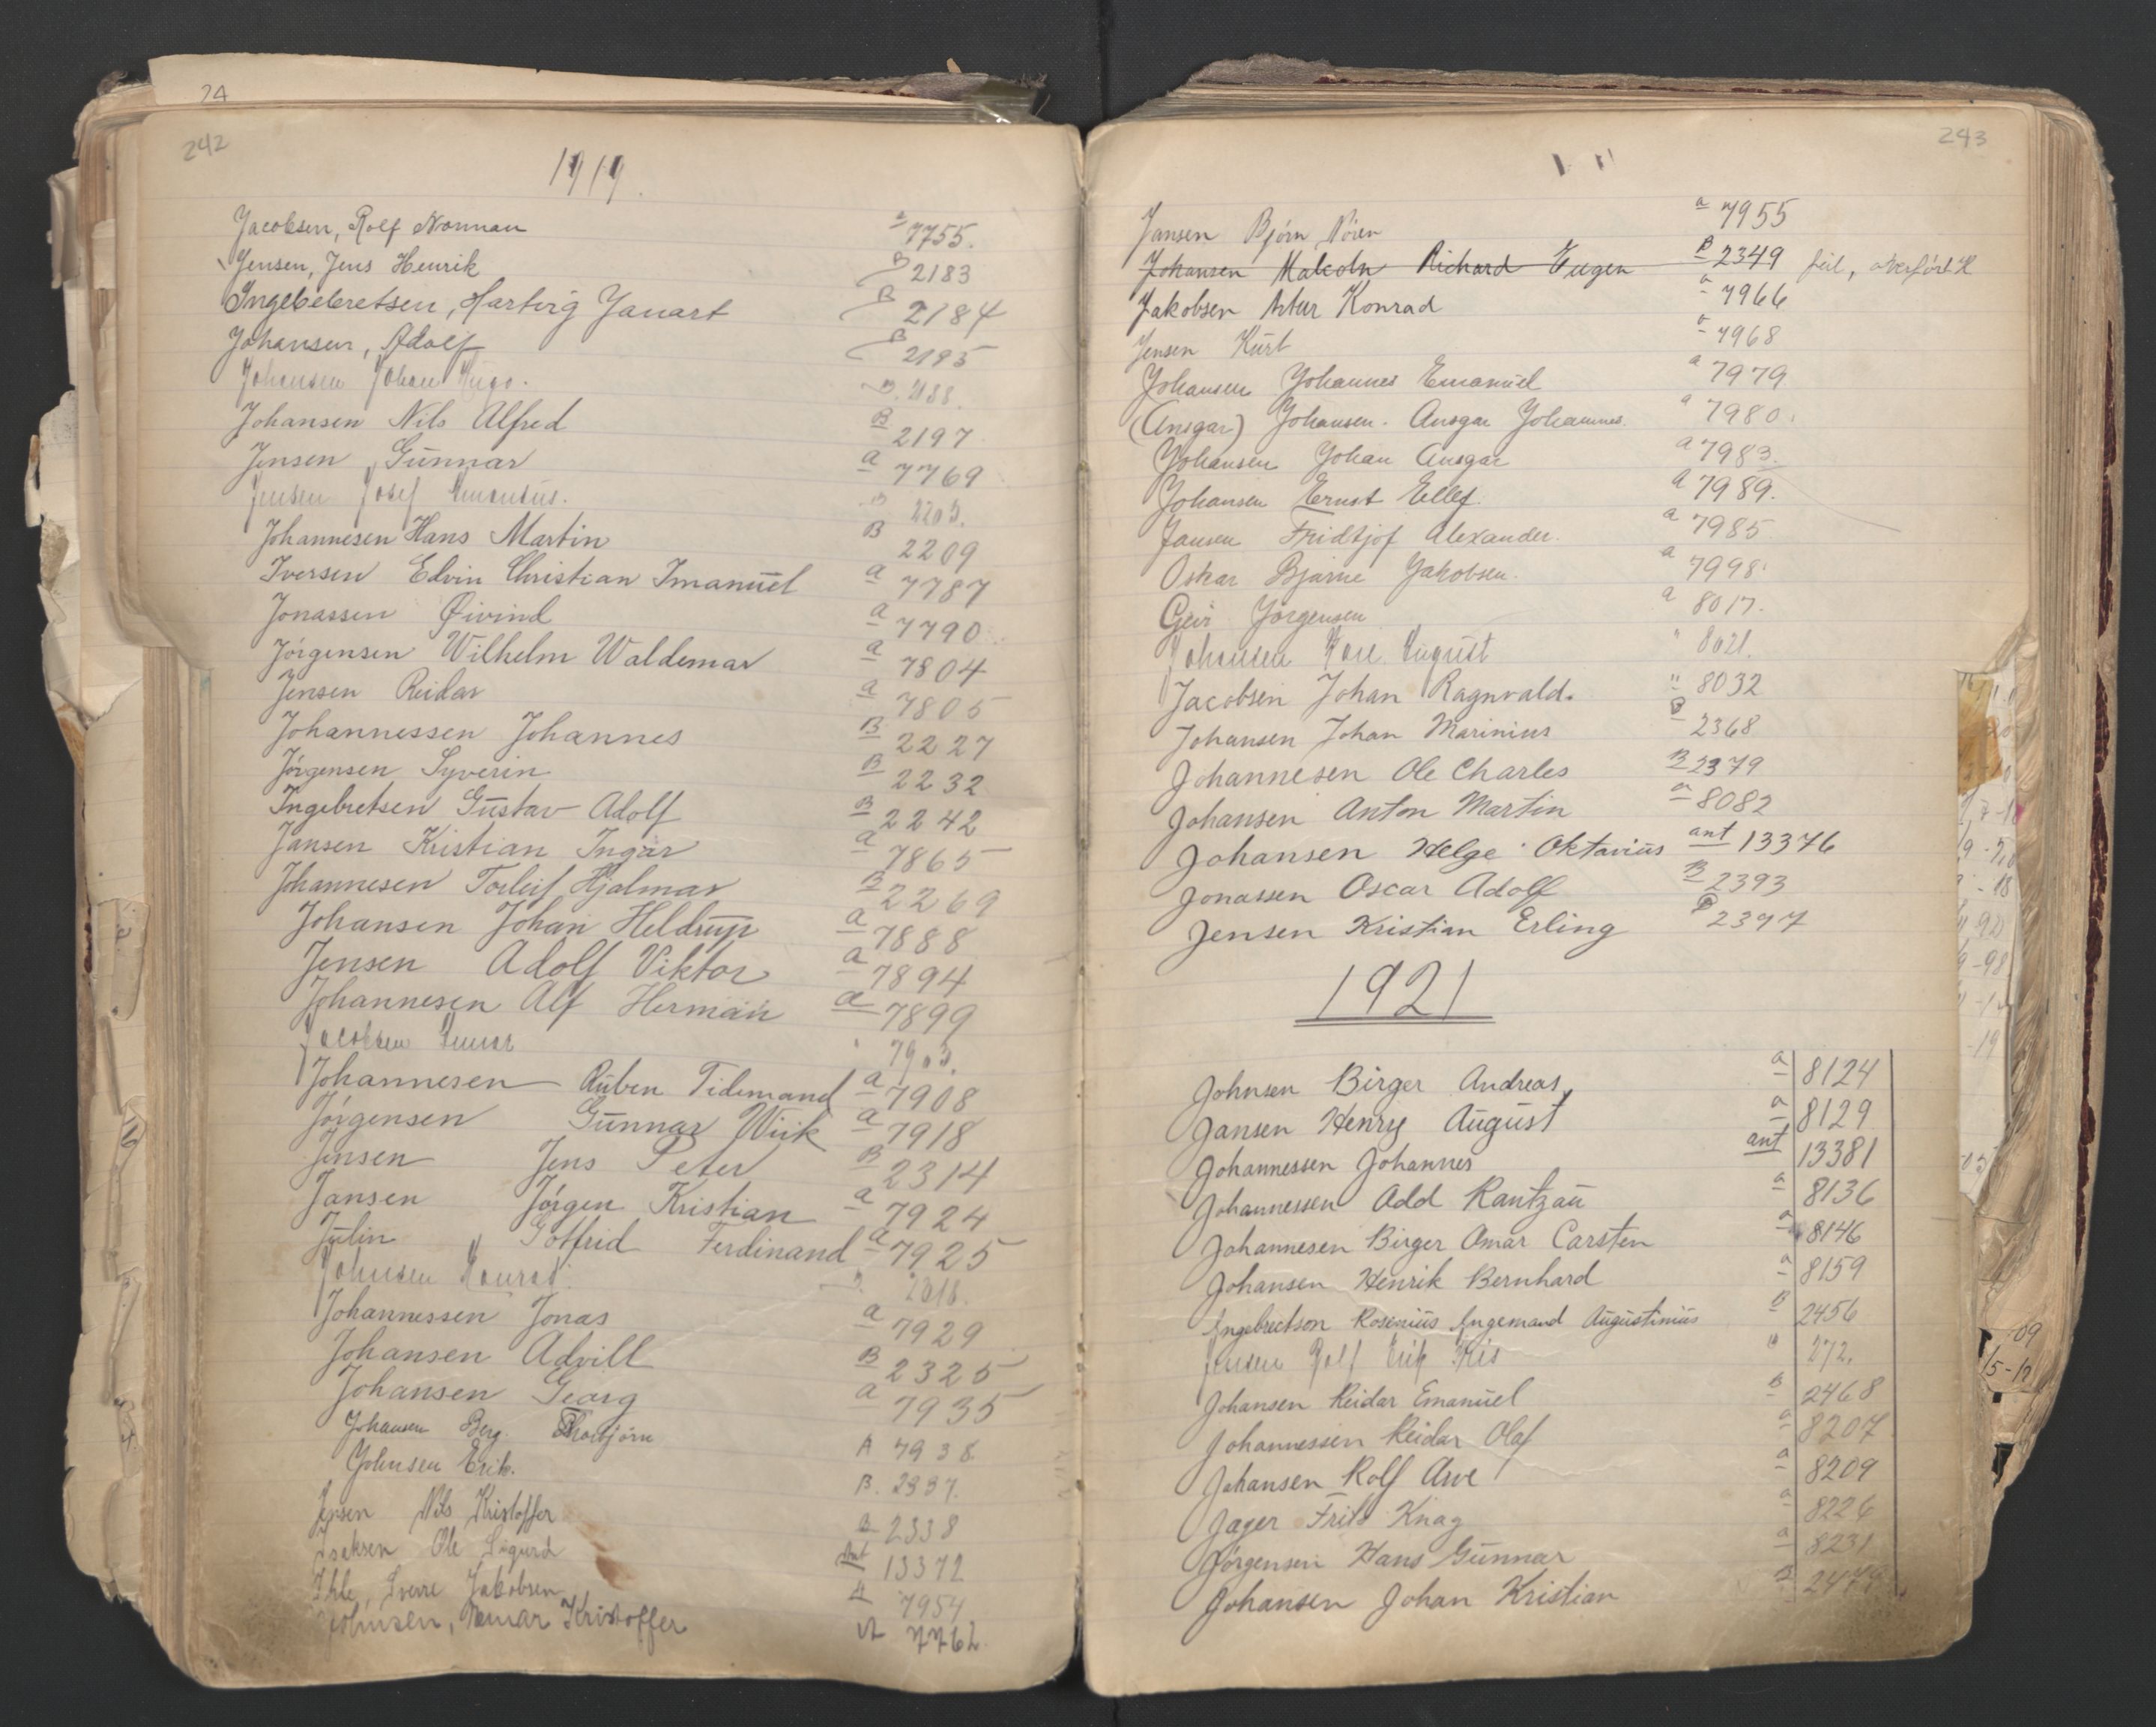 24
242
1919.
Jacobsen, Rolf Norman a 7755.
Jensen, Jens Henrik B 2183
Ingebebretsen, Hartvig Januart B 2184
Johansen, Adolf B 2185
Johansen Johan Hugo. B. 2188.
Johansen Nils Alfred B 2197
Jensen Gunnar a 7769
Jensen Josef B 2203.
Johannesen Hans Martin B 2209
Iversen Edvin Christian Imanuel a 7787
Jonassen Øivind a 7790
Jörgensen Wilhelm Waldemar a 7804
Jensen Reidar a 7805
Johannessen Johannes B 2227
Jörgensen Syverin B 2232
Ingebretsen Gustav Adolf B 2242
Jansen Kristian Ingar a 7865
Johannesen Torleif Hjalmar B 2269
Johansen Johan Heldrup a 7888
Jensen Adolf Viktor a 7894
Johannesen Alf Herman a 7899
Jacobsen 7903.
Johannesen Ruben Tidemand a 7908
Jörgensen Gunnar Wiik a 7918
Jensen Jens Peter B 2314
Jansen Jörgen Kristian a 7924
Julin Gotfrid Ferdinand a 7925
Johnsen Konrad. B. 2318.
Johannessen Jonas a 7929
Johansen Advill B 2325
Johansen Georg a 7935
Johansen Berg. Thorbjörn A 7938
Johnsen Erik. B. 2337.
Jensen Nils Kristoffer B 2338
Isaksen Ole Sigurd Ant 13372
Ihle, Sverre Jakobsen A 7954
Johnsen, Kristoffer A 7762.
243
Jansen Björn Nören a 7955
Johansen Malcoln Richard Eugen B 2349 feil, overfört H
Jakobsen Artur Konrad a 7966
Jensen Kurt a 7968
Johansen Johannes Emanuel a 7979
(Ansgar) Johansen. Ansgar Johannes. a 7980.
Johansen Johan Ansgar a 7983.
Johansen Ernst Ellef. a 7989.
Jansen Fridtjof Alexander. a 7985
Oskar Bjarne Jakobsen. a 7998.
Geir Jørgensen a 8017.
Johansen Kare August " 8021.
Jacobsen Johan Ragnvald. " 8032
Johansen Johan Marinius B 2368
Johannesen Ole Charles B 2379
Johansen Anton Martin a 8082
Johansen Helge Oktavius ant 13376
Jonassen Oscar Adolf B 2393
Jensen Kristian Erling B 2397
1921
Johnsen Birger Andreas, a 8124
Jansen Henry August a 8129
Johannessen Johannes ant 13381
Johannessen Odd Rantzau a 8136
Johannesen Birger Omar Carsten a 8146
Johansen Henrik Bernhard a 8159
Ingebrectson Rosenius Ingemand Augustinius B 2456
Jensen Rolf Erik " 272.
Johansen Reidar Emanuel B 2468
Johannessen Reidar Olaf a 8207
Johansen Rolf Arve a 8209
Jager Frits Knag a 8226
Jörgensen Hans Gunnar a 8231
Johansen Johan Kristian B